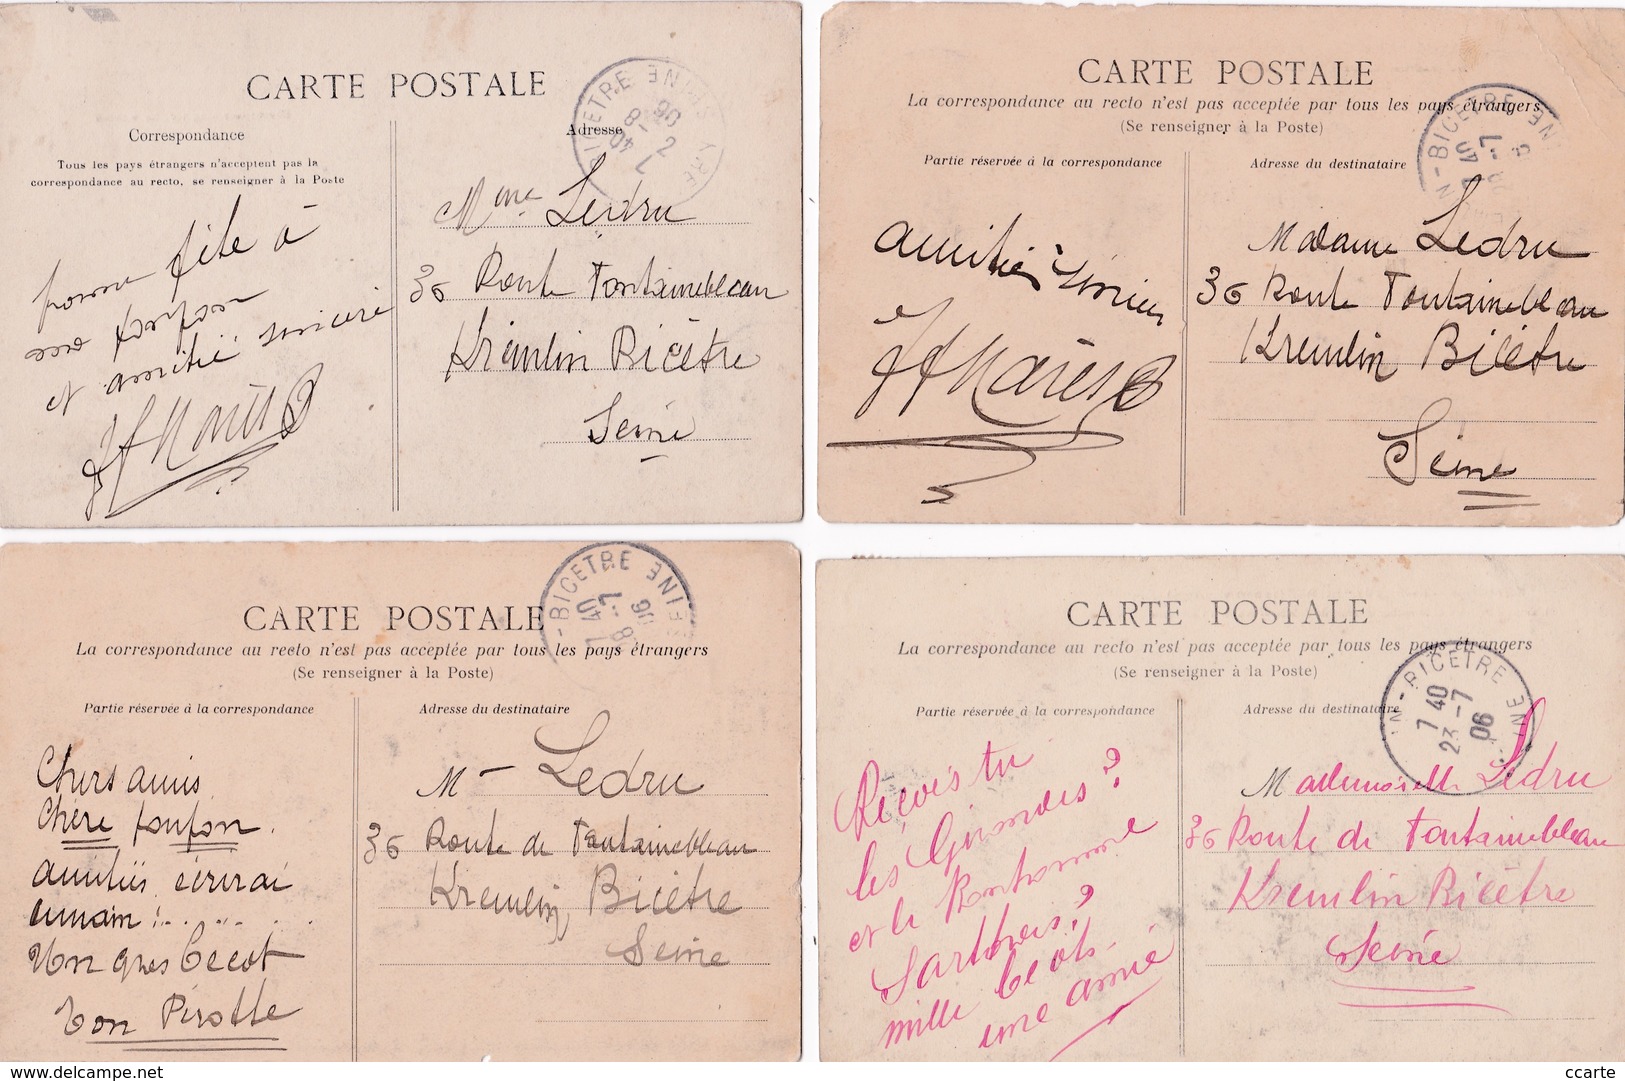 CARTE POSTALE
Correspondance
Adresse
Tous les pays étrangers n'acceptent pas la
correspondance au recto, se renseigner à la Poste
BICÊTRE SEINE
bonne fête à
fonfon
et amitié sincère
Mme Ledru
36 Route Fontainebleau
Kremlin Bicêtre
Seine
CARTE POSTALE
La correspondance au recto n'est pas acceptée par tous les pays étrangers
(Se renseigner à la Poste)
Partie réservée à la correspondance
Adresse du destinataire
N-BICETRE
amitiés
Madame Ledru
36 Route Fontainebleau
Kremlin Bicêtre
Seine
CARTE POSTALE
La correspondance au recto n'est pas acceptée par tous les pays étrangers
(Se renseigner à la Poste)
Partie réservée à la correspondance
Adresse du destinataire
-BICETRE SEINE
7 40
8 -7
06
Chers amis
Chère fonfon.
amitiés écrirai
Ton gros Cecot
Ton Pirotte
M- Ledru
36 Route de Fontainebleau
Kremlin Bicêtre
Seine
CARTE POSTALE
La correspondance au recto n'est pas acceptée par tous les pays étrangers
(Se renseigner à la Poste)
Partie réservée à la correspondance
Adresse du destinataire
N-BICETRE SEINE
7 40
23 -7
06
Reçois tu
les Girondes?
et le
mille
une amie
Mademoiselle Ledru
36 Route de Fontainebleau
Kremlin Bicêtre
Seine
www.delcampe.net
ccarte